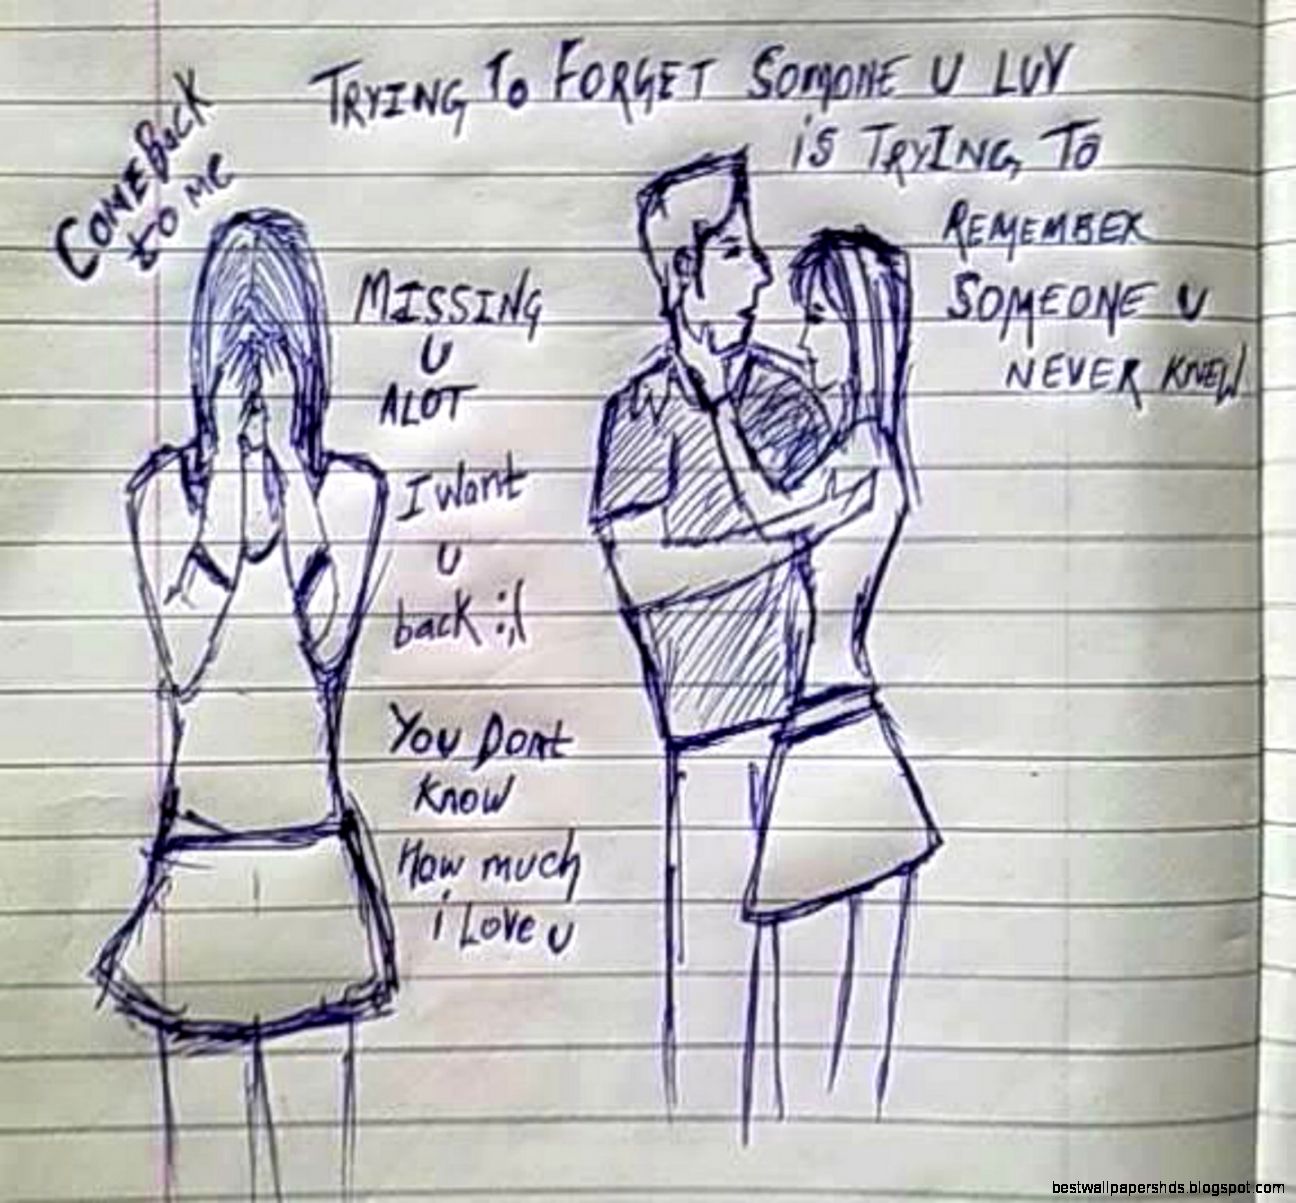 COME BacK
to me
TRYING To FORGET SOMONE U LUV
iS TRYING TO
REMEMBER
SOMEONE U
NEVER KNEW
MISSING
U
ALOT
I Want
U
back :,(
YOU Dont
KNOW
How much
i LOVE U
bestwallpapershds.blogspot.com